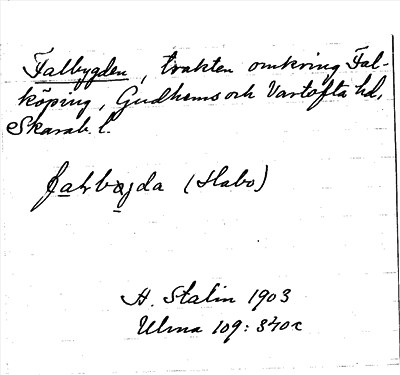 Falbygden, trakten omkring Fal-
köping, Gudhems och Vartofta hd,
Skarab. l.
(Habo)
H. Stalin 1903
Ulma 109: 340